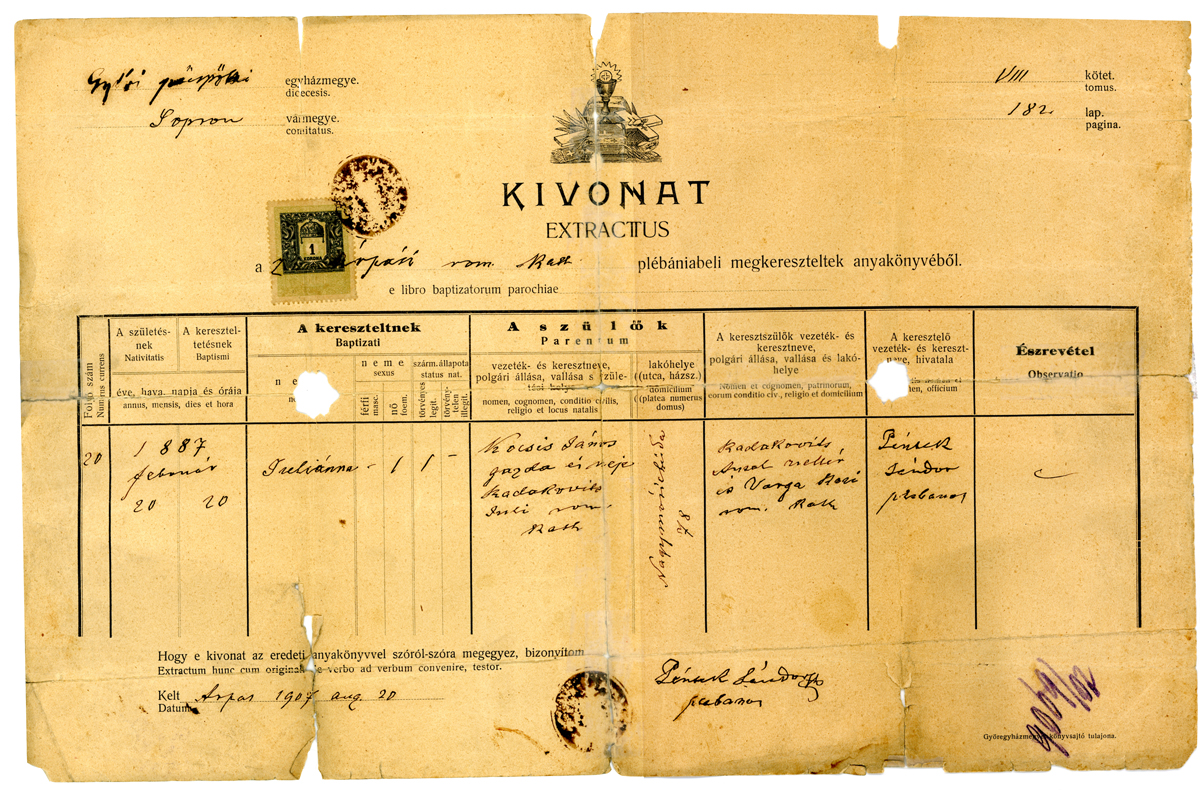 Győri püspöki egyházmegye.
dioecesis.
Sopron vármegye.
comitatus.
VIII kötet.
tomus.
182 lap.
pagina.
KIVONAT
EXTRACTUS
1
KORONA
a árpási rom. kath plébániabeli megkereszteltek anyakönyvéből.
e libro baptizatorum parochiae
Folyó szám
Numerus currens
A születés-
nek
Nativitatis
A keresztel-
tetésnek
Baptismi
éve, hava, napja és órája
annus, mensis, dies et hora
A kereszteltnek
Baptizati
neme
sexus
férfi
masc.
nő
foem.
szárm. állapota
status nat.
törvényes
legit.
törvény-
telen
illegit.
A szülők
Parentum
vezeték- és keresztneve,
polgári állása, vallása s szüle-
tési helye
nomen, cognomen, conditio civilis,
religio et locus natalis
lakóhelye
(utca, házsz.)
domicilium
(platea numerus
domus)
A keresztszülők vezeték- és
keresztneve,
polgári állása, vallása és lakó-
helye
Nomen et cognomen, patrinorum,
eorum conditio civ., religio et domicilium
A keresztelő
vezeték- és kereszt-
neve, hivatala
officium
Észrevétel
Observatio
20
1887
február
20 20
Juliánna - 1 1 -
Kocsis János
gazda és neje
Radakovits
Juli rom.
kath
78
Radakovits
zsellér
és Varga Rozi
rom. kath
Péntek
Sándor
plebanos
Hogy e kivonat az eredeti anyakönyvvel szóról-szóra megegyez, bizonyítom
Extractum hunc cum originali de verbo ad verbum convenire, testor.
Kelt Arpas 1907 aug. 20
Datum
Péntek Sándor
plebanos
Győregyházmegyei könyvsajtó tulajdona.